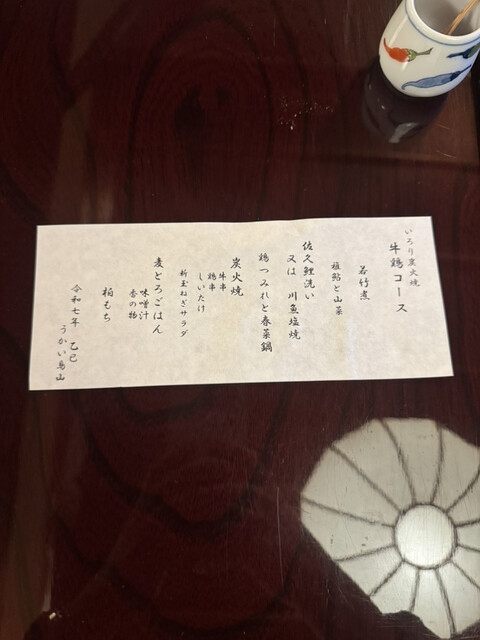 いろり炭火焼
牛鶏コース
若竹煮
稚鮎と山菜
佐久鯉洗い
又は 川魚塩焼
鶏つみれと春菜鍋
炭火焼
牛串
鶏串
しいたけ
新玉ねぎサラダ
麦とろごはん
味噌汁
香の物
柏もち
令和七年 乙巳
うかい鳥山